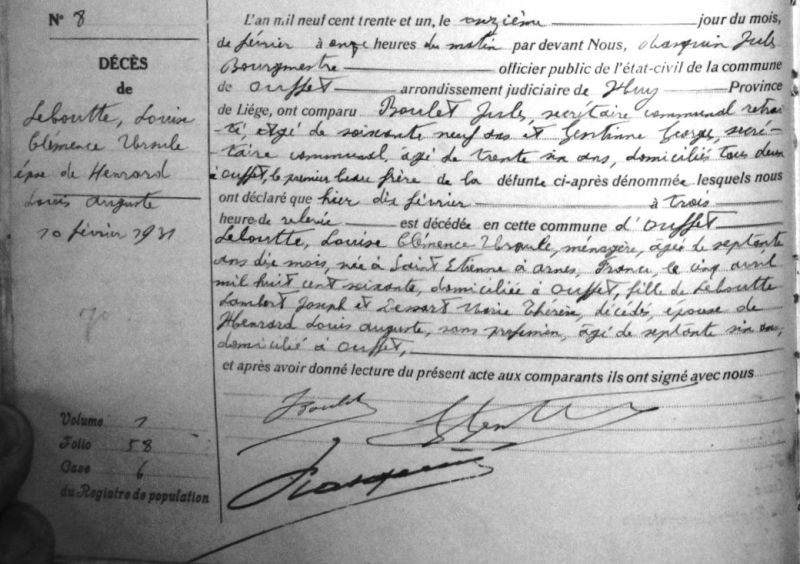 N° 8
DÉCÈS
de
Leboutte, Louise
Clémence Ursule
épse de Henrard
Louis Auguste
10 février 1931
70
Volume 1
Folio 58
Case 6
du Registre de population
L'an mil neuf cent trente et un, le onzième jour du mois,
de février à onze heures du matin par devant Nous, Jules
Bourgmestre officier public de l'état-civil de la commune
de Ouffet arrondissement judiciaire de Huy Province
de Liége, ont comparu Boulet Jules, secrétaire communal retrai-
té, âgé de soixante neuf ans et Georges, secré-
taire communal, âgé de trente six ans, domiciliés tous deux
à Ouffet, le premier beau frère de la défunte ci-après dénommée lesquels nous
ont déclaré que hier dix février à trois
heure de relevée est décédée en cette commune d'Ouffet
Leboutte, Louise Clémence Ursule, ménagère, âgée de septante
ans dix mois, née à Saint Etienne à Arnes, France, le cinq avril
mil huit cent soixante, domiciliée à Ouffet, fille de Leboutte
Lambert Joseph et Dessart Marie Thérèse, décédés, épouse de
Henrard Louis Auguste, sans profession, âgé de septante six ans,
domicilié à Ouffet,
et après avoir donné lecture du présent acte aux comparants ils ont signé avec nous
JBoulet